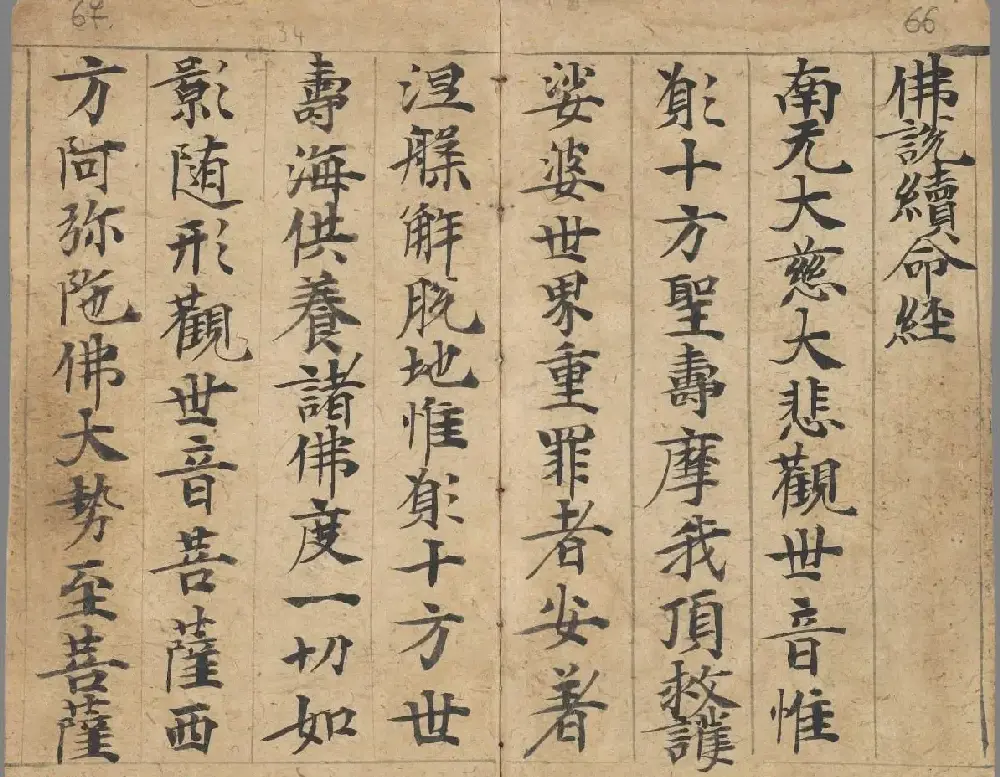 66
佛說續命經
南无大慈大悲觀世音惟
願十方聖壽摩我頂救護
娑婆世界重罪者安著
67
34
涅槃解脫地惟願十方世
壽海供養諸佛度一切如
影随形觀世音菩薩西
方阿弥陁佛大勢至菩薩